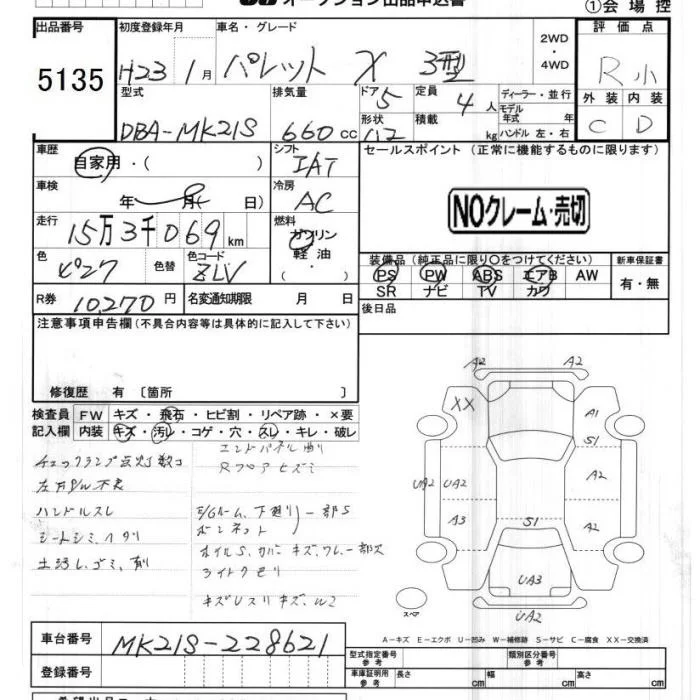 オークション出品申込書
①会場控
出品番号
5135
初度登録年月
H23 1月
車名・グレード
パレット X 3型
2WD
・
4WD
評価点
R 小
外装 内装
C D
型式
DBA-MK21S
排気量
660 cc
ドア 5
形状
定員 4人
積載 kg
ディーラー・並行
モデル
年式 年
ハンドル 左・右
車歴
自家用・( )
シフト
IAT
セールスポイント (正常に機能するものに限ります)
NOクレーム・売切
車検
年 月( 日)
冷房
AC
走行
15万3千069 km
燃料
ガソリン
軽油
・
色
ピンク
色替
色コード
ZLV
装備品 (純正品に限り○をつけてください)
PS PW ABS エアB AW
SR ナビ TV カワ
新車保証書
有・無
R券 10,270円
名変通知期限 月 日
後日品
注意事項申告欄(不具合内容等は具体的に記入して下さい)
修復歴 有〔箇所 〕
検査員
記入欄
FW キズ・飛石・ヒビ割・リペア跡・×要
内装 キズ・汚レ・コゲ・穴・スレ・キレ・破レ
エンドパネル曲り
チェックランプ点灯数コ
ハンドルスレ
下廻り一部S
ボンネット
ライトクモリ
A2 A2
XX A1
S1
UA2 UA2 A2
A3 S1 A2
UA3
UA2
スペア
A-キズ E-エクボ U-凹み W-補修跡 S-サビ C-腐食 XX-交換済
車台番号
MK21S-228621
登録番号
型式指定番号
参考
類別区分番号
参考
車庫証明用
参考
長さ cm 幅 cm 高さ cm